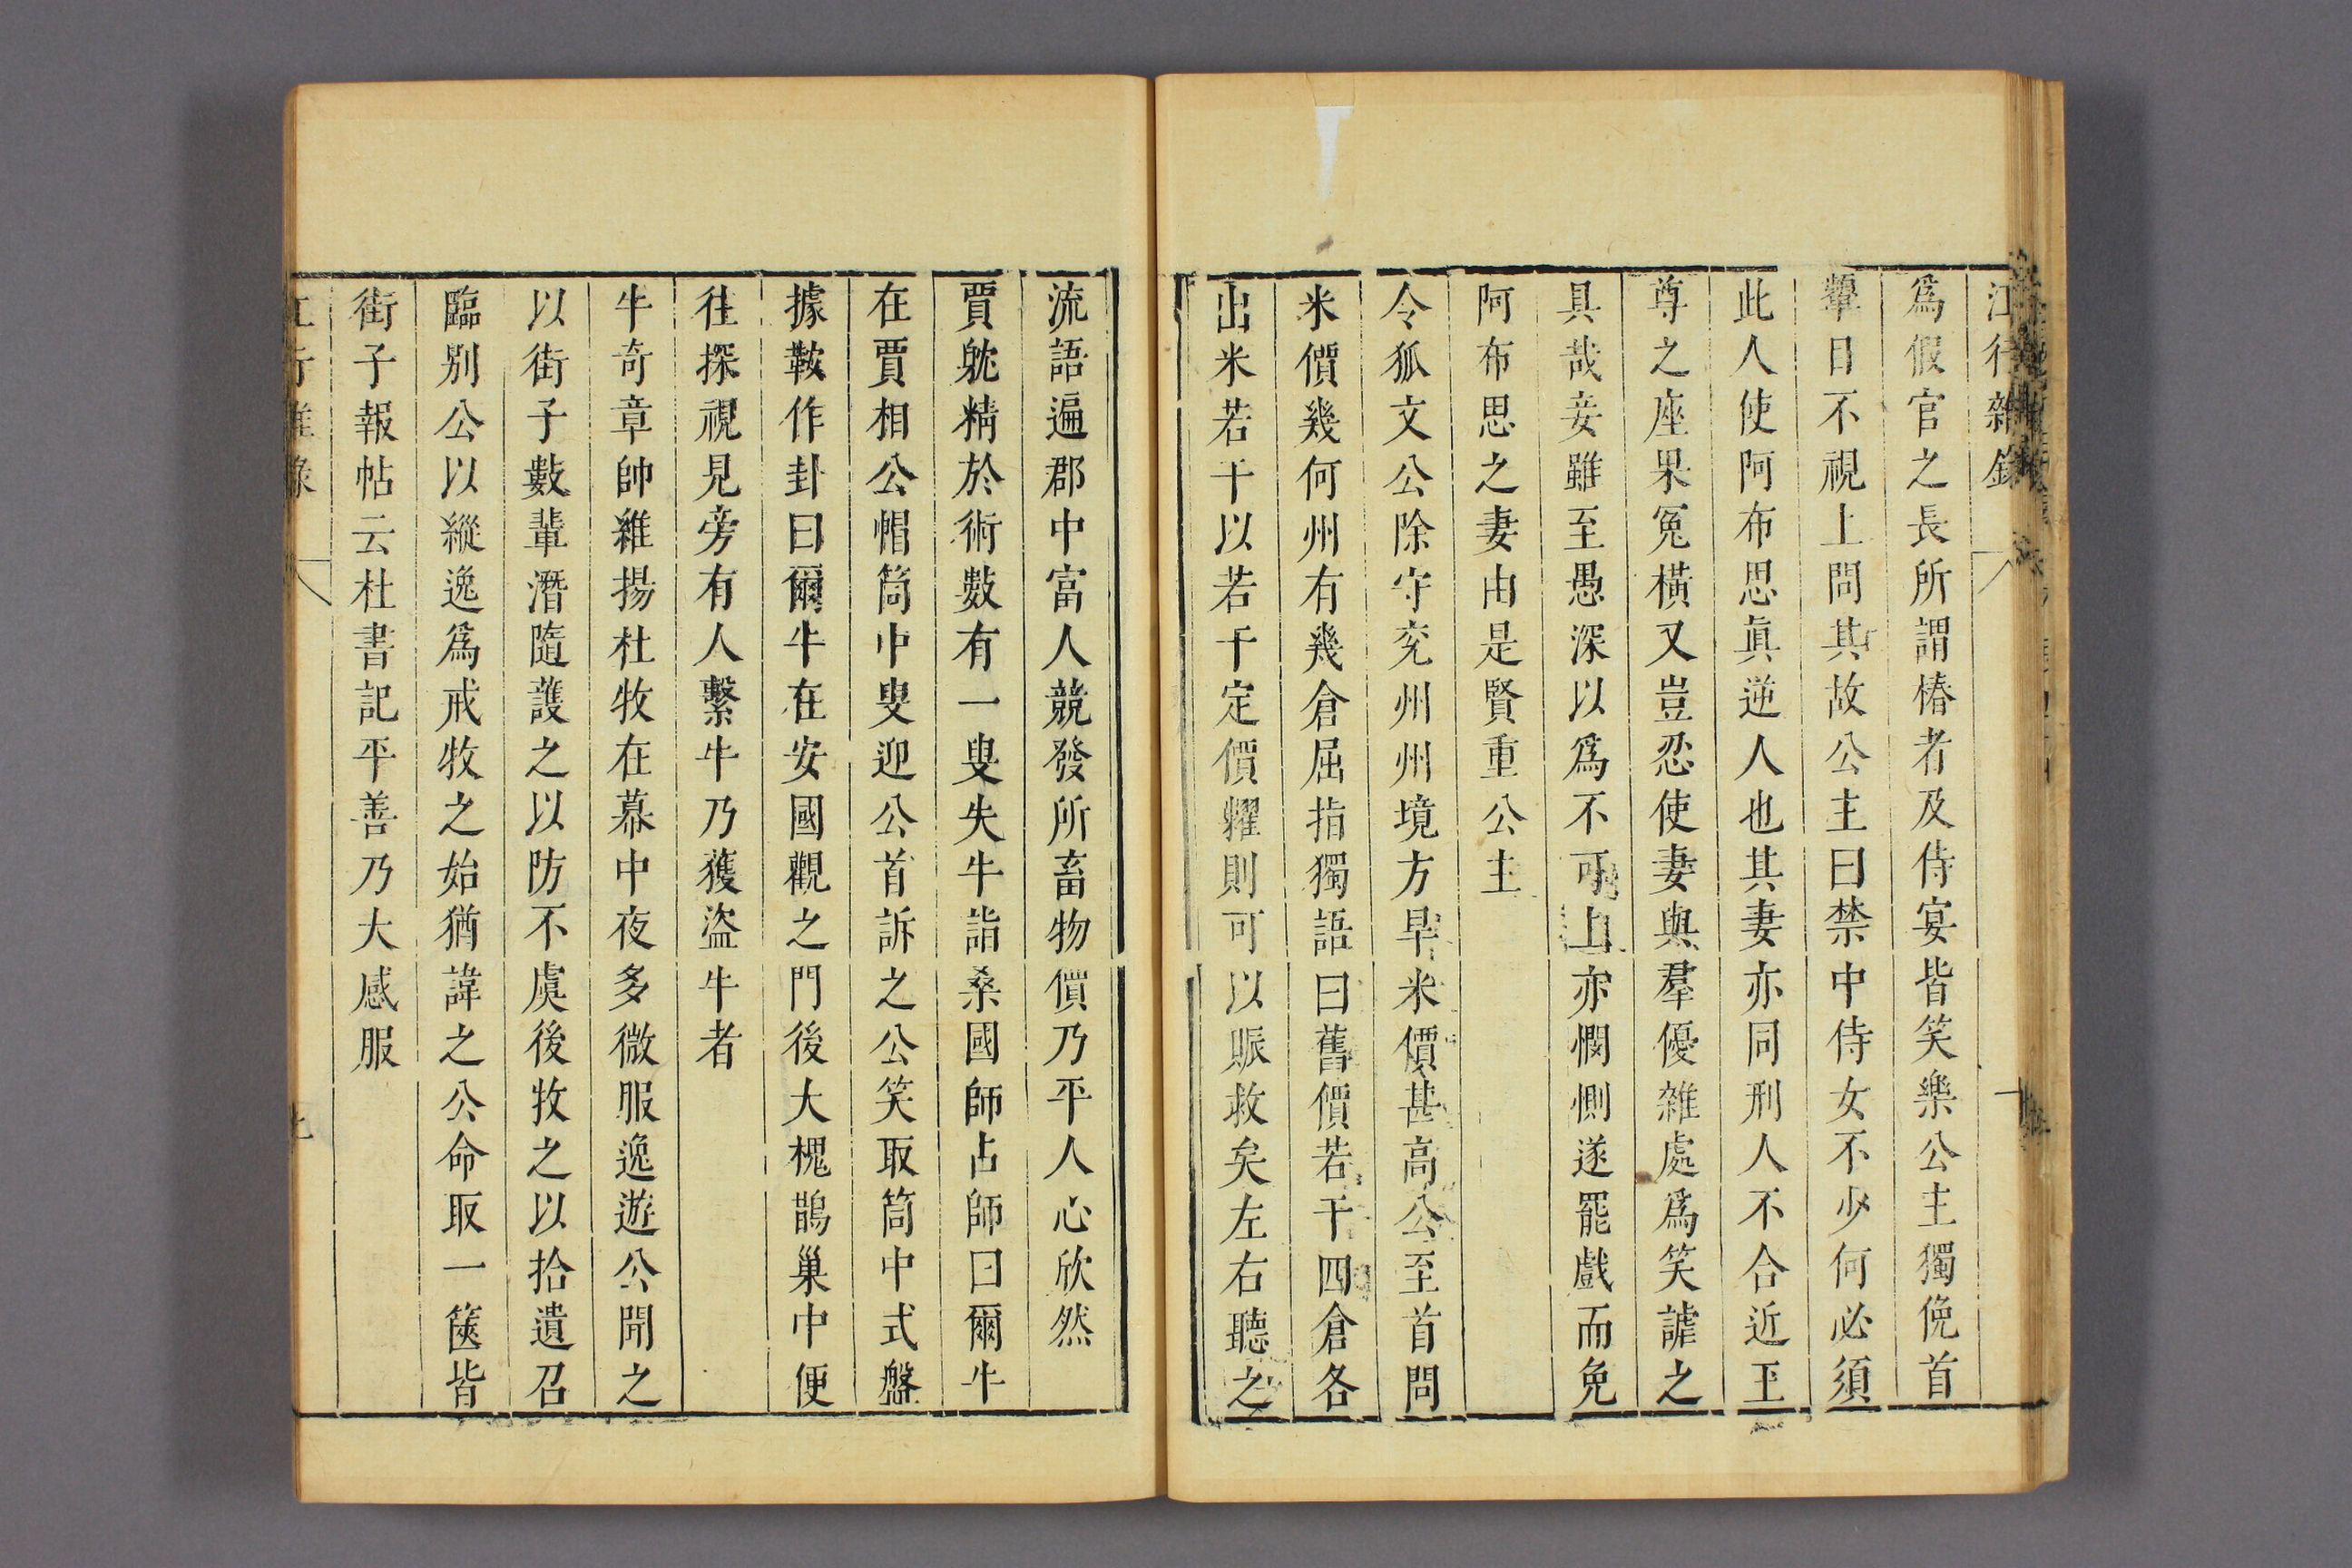 江行雜錄
爲假官之長所謂椿者及侍宴皆笑樂公主獨俛首
顰目不視上問其故公主曰禁中侍女不少何必須
此人使阿布思眞逆人也其妻亦同刑人不合近王
尊之座果冤橫又豈忍使妻與羣優雜處爲笑謔之
具哉妾雖至愚深以爲不可上亦憫惻遂罷戲而免
阿布思之妻由是賢重公主
令狐文公除守兖州州境方旱米價甚高公至首問
米價幾何州有幾倉屈指獨語曰舊價若干四倉各
出米若干以若干定價糶則可以賑救矣左右聽之
流語遍郡中富人競發所畜物價乃平人心欣然
賈躭精於術數有一叟失牛詣桑國師占師曰爾牛
在賈相公帽筒中叟迎公首訴之公笑取筒中式盤
據鞍作卦曰爾牛在安國觀之門後大槐鵲巢中便
往探視見旁有人繫牛乃獲盜牛者
牛奇章帥維揚杜牧在幕中夜多微服逸遊公聞之
以街子數輩潛隨護之以防不虞後牧之以拾遺召
臨别公以縱逸爲戒牧之始猶諱之公命取一篋皆
街子報帖云杜書記平善乃大感服
江行雜錄